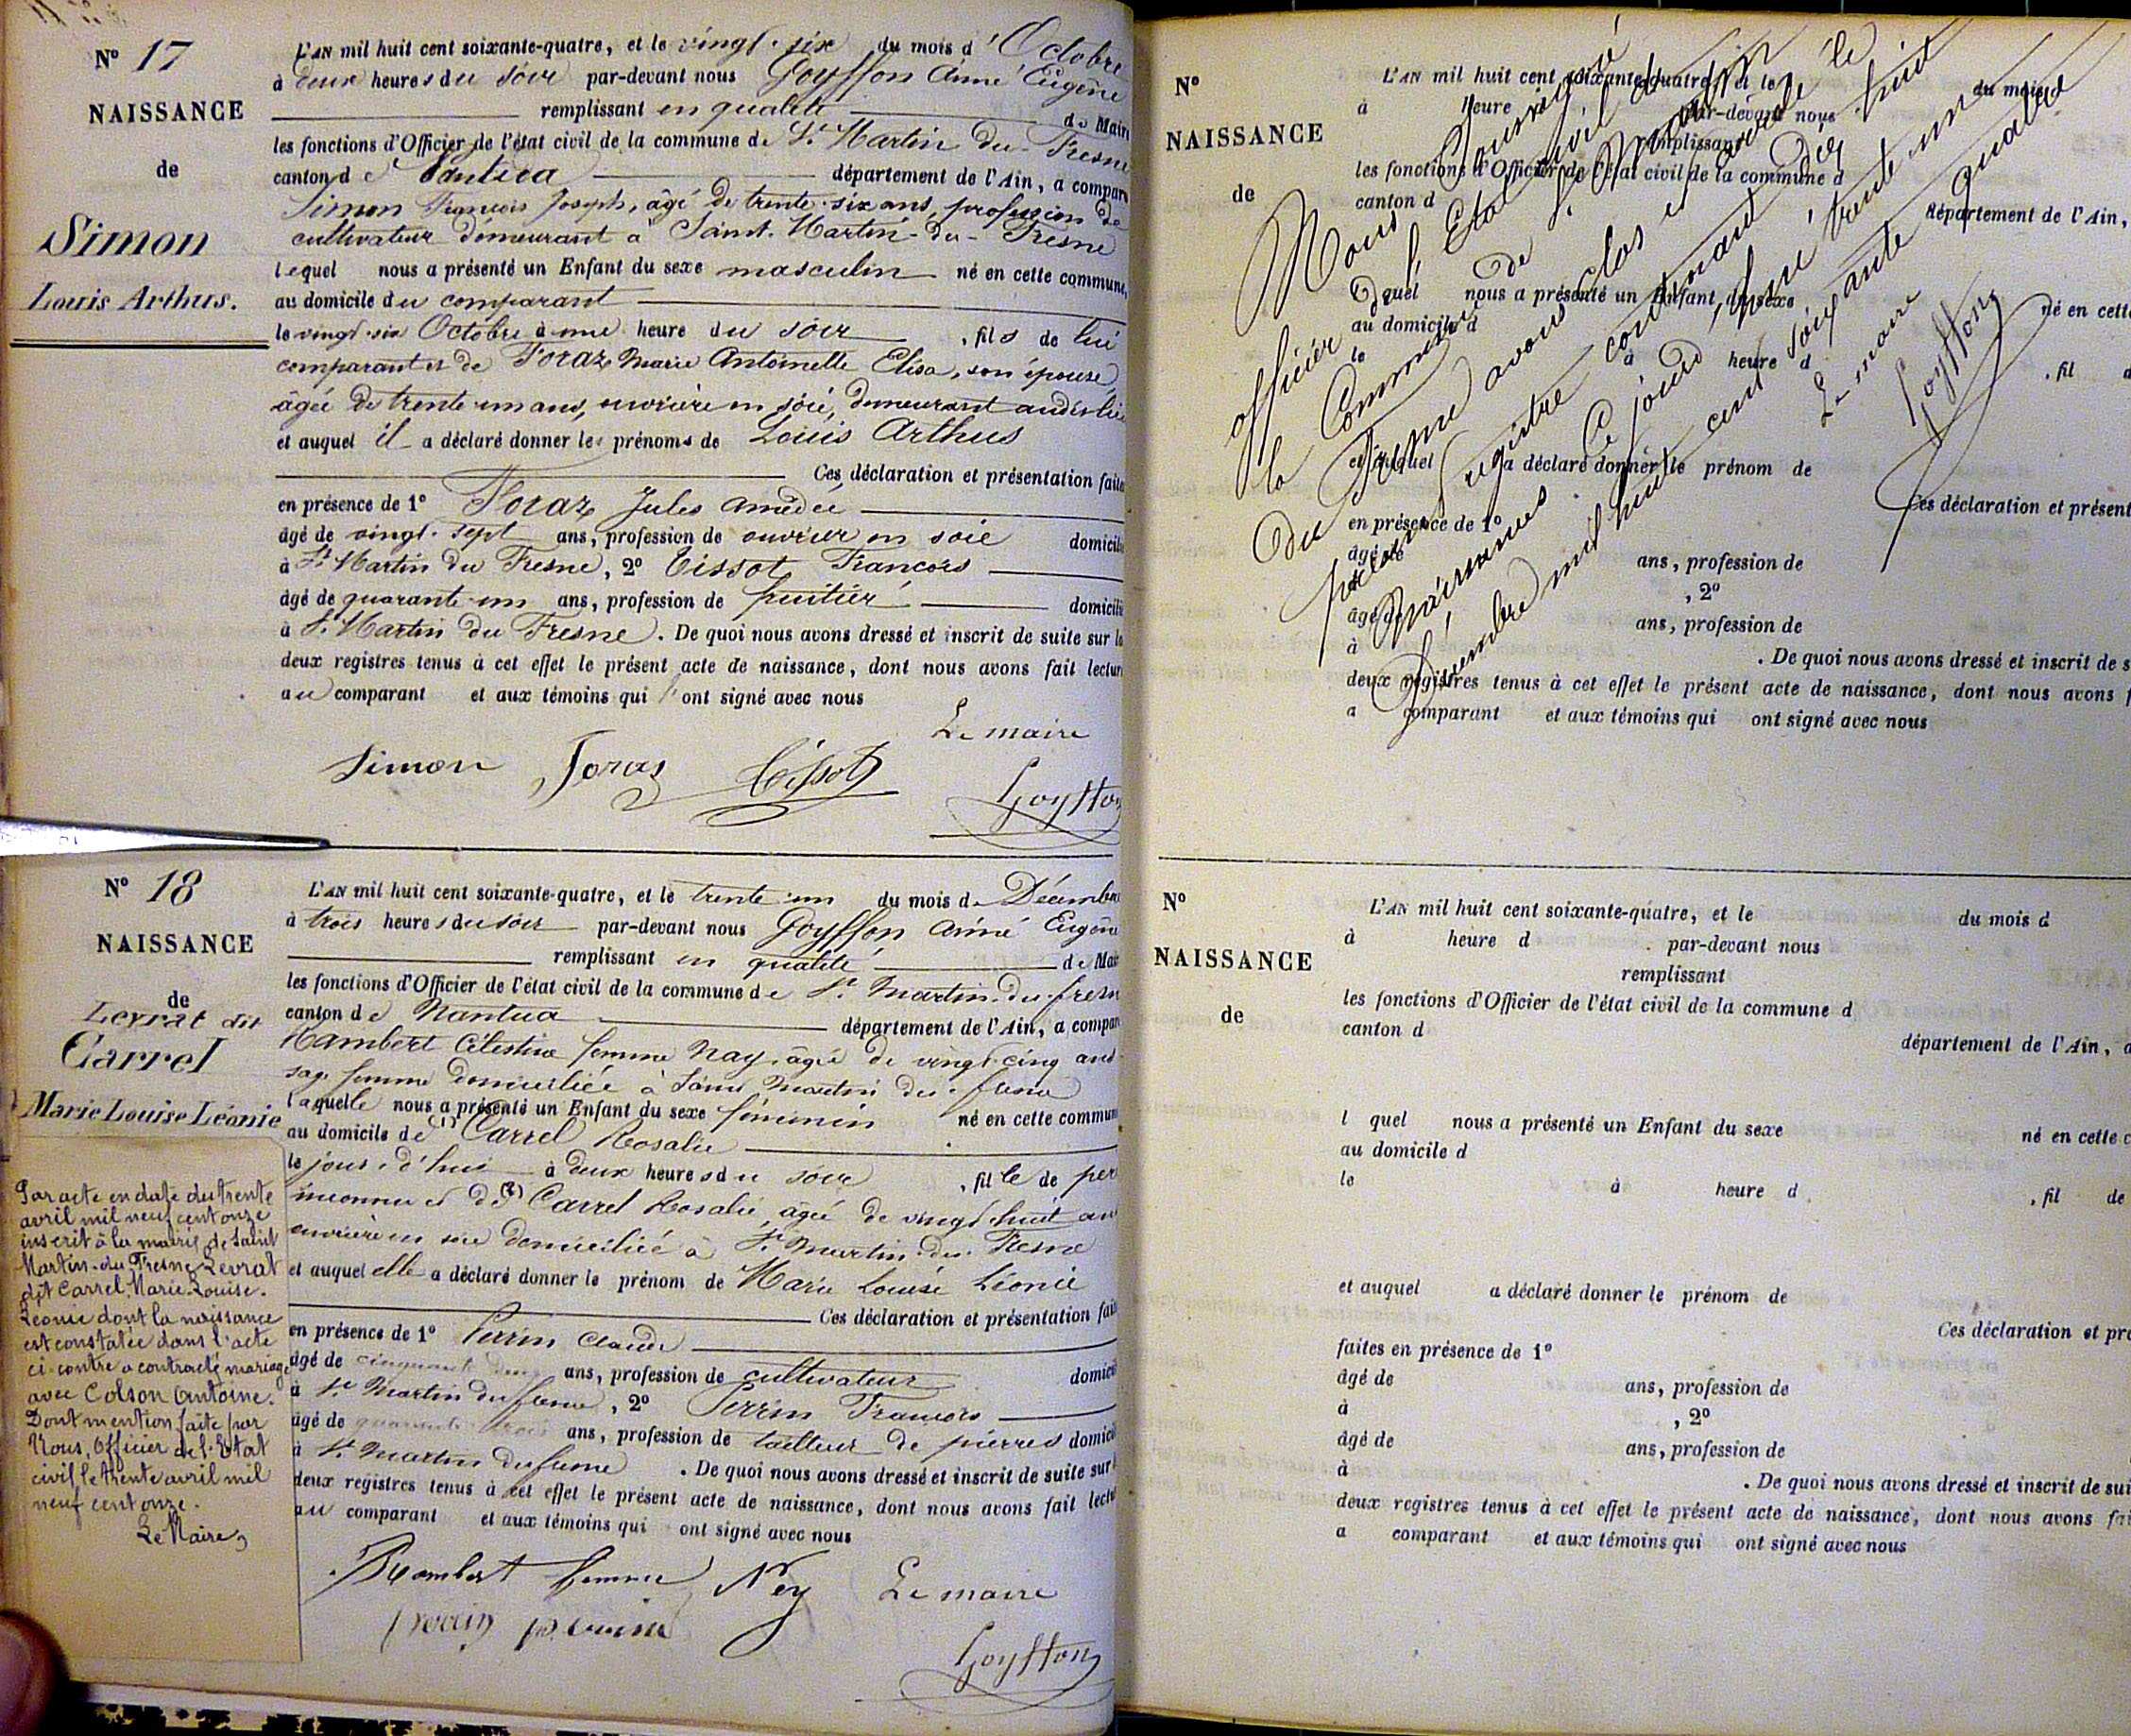 N° 17
NAISSANCE
de
Simon
Louis Arthus.
L'AN mil huit cent soixante-quatre, et le vingt-six du mois d'Octobre
à deux heures du soir par-devant nous Goyffon Aimé Eugène
remplissant en qualité de Maire
les fonctions d'Officier de l'état civil de la commune de St Martin du Fresne
canton de Nantua département de l'Ain, a comparu
Simon François Joseph, âgé de trente-six ans, profession de
cultivateur demeurant à Saint-Martin-du-Fresne
lequel nous a présenté un Enfant du sexe masculin né en cette commune,
au domicile du comparant
le vingt-six Octobre à une heure du soir, fils de lui
comparant et de Foraz Marie Antoinette Elisa, son épouse,
âgée de trente-un ans, ouvrière en soie, demeurant audit lieu
et auquel il a déclaré donner les prénoms de Louis Arthus
Ces déclaration et présentation faites
en présence de 1° Foraz Jules Amédée
âgé de vingt-sept ans, profession de ouvrier en soie domicilié
à St Martin du Fresne, 2° Tissot François
âgé de quarante-un ans, profession de fruitier domicilié
à St Martin du Fresne. De quoi nous avons dressé et inscrit de suite sur le
deux registres tenus à cet effet le présent acte de naissance, dont nous avons fait lecture
au comparant et aux témoins qui ont signé avec nous
Le maire
Simon Foraz Tissot
Goyffon
N° 18
NAISSANCE
de
Levrat dit
Carrel
Marie Louise Léonie
L'AN mil huit cent soixante-quatre, et le trente-un du mois de Décembre
à trois heures du soir par-devant nous Goyffon Aimé Eugène
remplissant en qualité de Maire
les fonctions d'Officier de l'état civil de la commune de St Martin-du-fresne
canton de Nantua département de l'Ain, a comparu
Rambert Célestine femme Nay, âgée de vingt-cinq ans
sage femme domiciliée à Saint Martin du fresne
laquelle nous a présenté un Enfant du sexe féminin né en cette commune
au domicile de (1) Carrel Rosalie
le jour d'hui à deux heures du soir, fille de père
inconnu et de (1) Carrel Rosalie, âgée de vingt huit ans
ouvrière en soie domiciliée à St Martin-du-Fresne
et auquel elle a déclaré donner le prénom de Marie Louise Léonie
Ces déclaration et présentation fait
en présence de 1° Perrin Claude
âgé de cinquante ans, profession de cultivateur domicil
à St Martin du fresne, 2° Perrin François
âgé de quarante trois ans, profession de tailleur de pierres domicil
à St Martin du fresne. De quoi nous avons dressé et inscrit de suite sur
deux registres tenus à cet effet le présent acte de naissance, dont nous avons fait lectu
au comparant et aux témoins qui ont signé avec nous
Rambert femme Ney Le maire
Goyffon
Par acte en date du trente
avril mil neuf cent onze
inscrit à la mairie de Saint
Martin-du-Fresne Levrat
dit Carrel Marie-Louise-
Léonie dont la naissance
est constatée dans l'acte
ci-contre a contracté mariage
avec Colson Antoine.
Dont mention faite par
Nous, Officier de l'Etat
civil le trente avril mil
neuf cent onze.
Le Maire,
N°
NAISSANCE
de
L'AN mil huit cent soixante-quatre, et le du mois d
à heure d par-devant nous
remplissant
les fonctions d'Officier de l'état civil de la commune d
canton d
département de l'Ain,
l quel nous a présenté un Enfant du sexe né en cette
au domicile d
le à heure d , fil d
et auquel a déclaré donner le prénom de
Ces déclaration et présent
en présence de 1°
âgé de ans, profession de
à , 2°
âgé de ans, profession de
à . De quoi nous avons dressé et inscrit de s
deux registres tenus à cet effet le présent acte de naissance, dont nous avons f
a comparant et aux témoins qui ont signé avec nous
Nous soussigné
officier de l'Etat civil de
la Commune de St Martin
du Fresne avons clos et arrêté le
présent registre contenant dix huit
naissances. Ce jourd'hui trente un
Décembre mil huit cent soixante quatre
Le maire
Goyffon
N°
NAISSANCE
de
L'AN mil huit cent soixante-quatre, et le du mois d
à heure d par-devant nous
remplissant
les fonctions d'Officier de l'état civil de la commune d
canton d
département de l'Ain, a
l quel nous a présenté un Enfant du sexe né en cette c
au domicile d
le à heure d , fil de
et auquel a déclaré donner le prénom de
Ces déclaration et pré
faites en présence de 1°
âgé de ans, profession de
à , 2°
âgé de ans, profession de
à . De quoi nous avons dressé et inscrit de sui
deux registres tenus à cet effet le présent acte de naissance, dont nous avons fai
a comparant et aux témoins qui ont signé avec nous